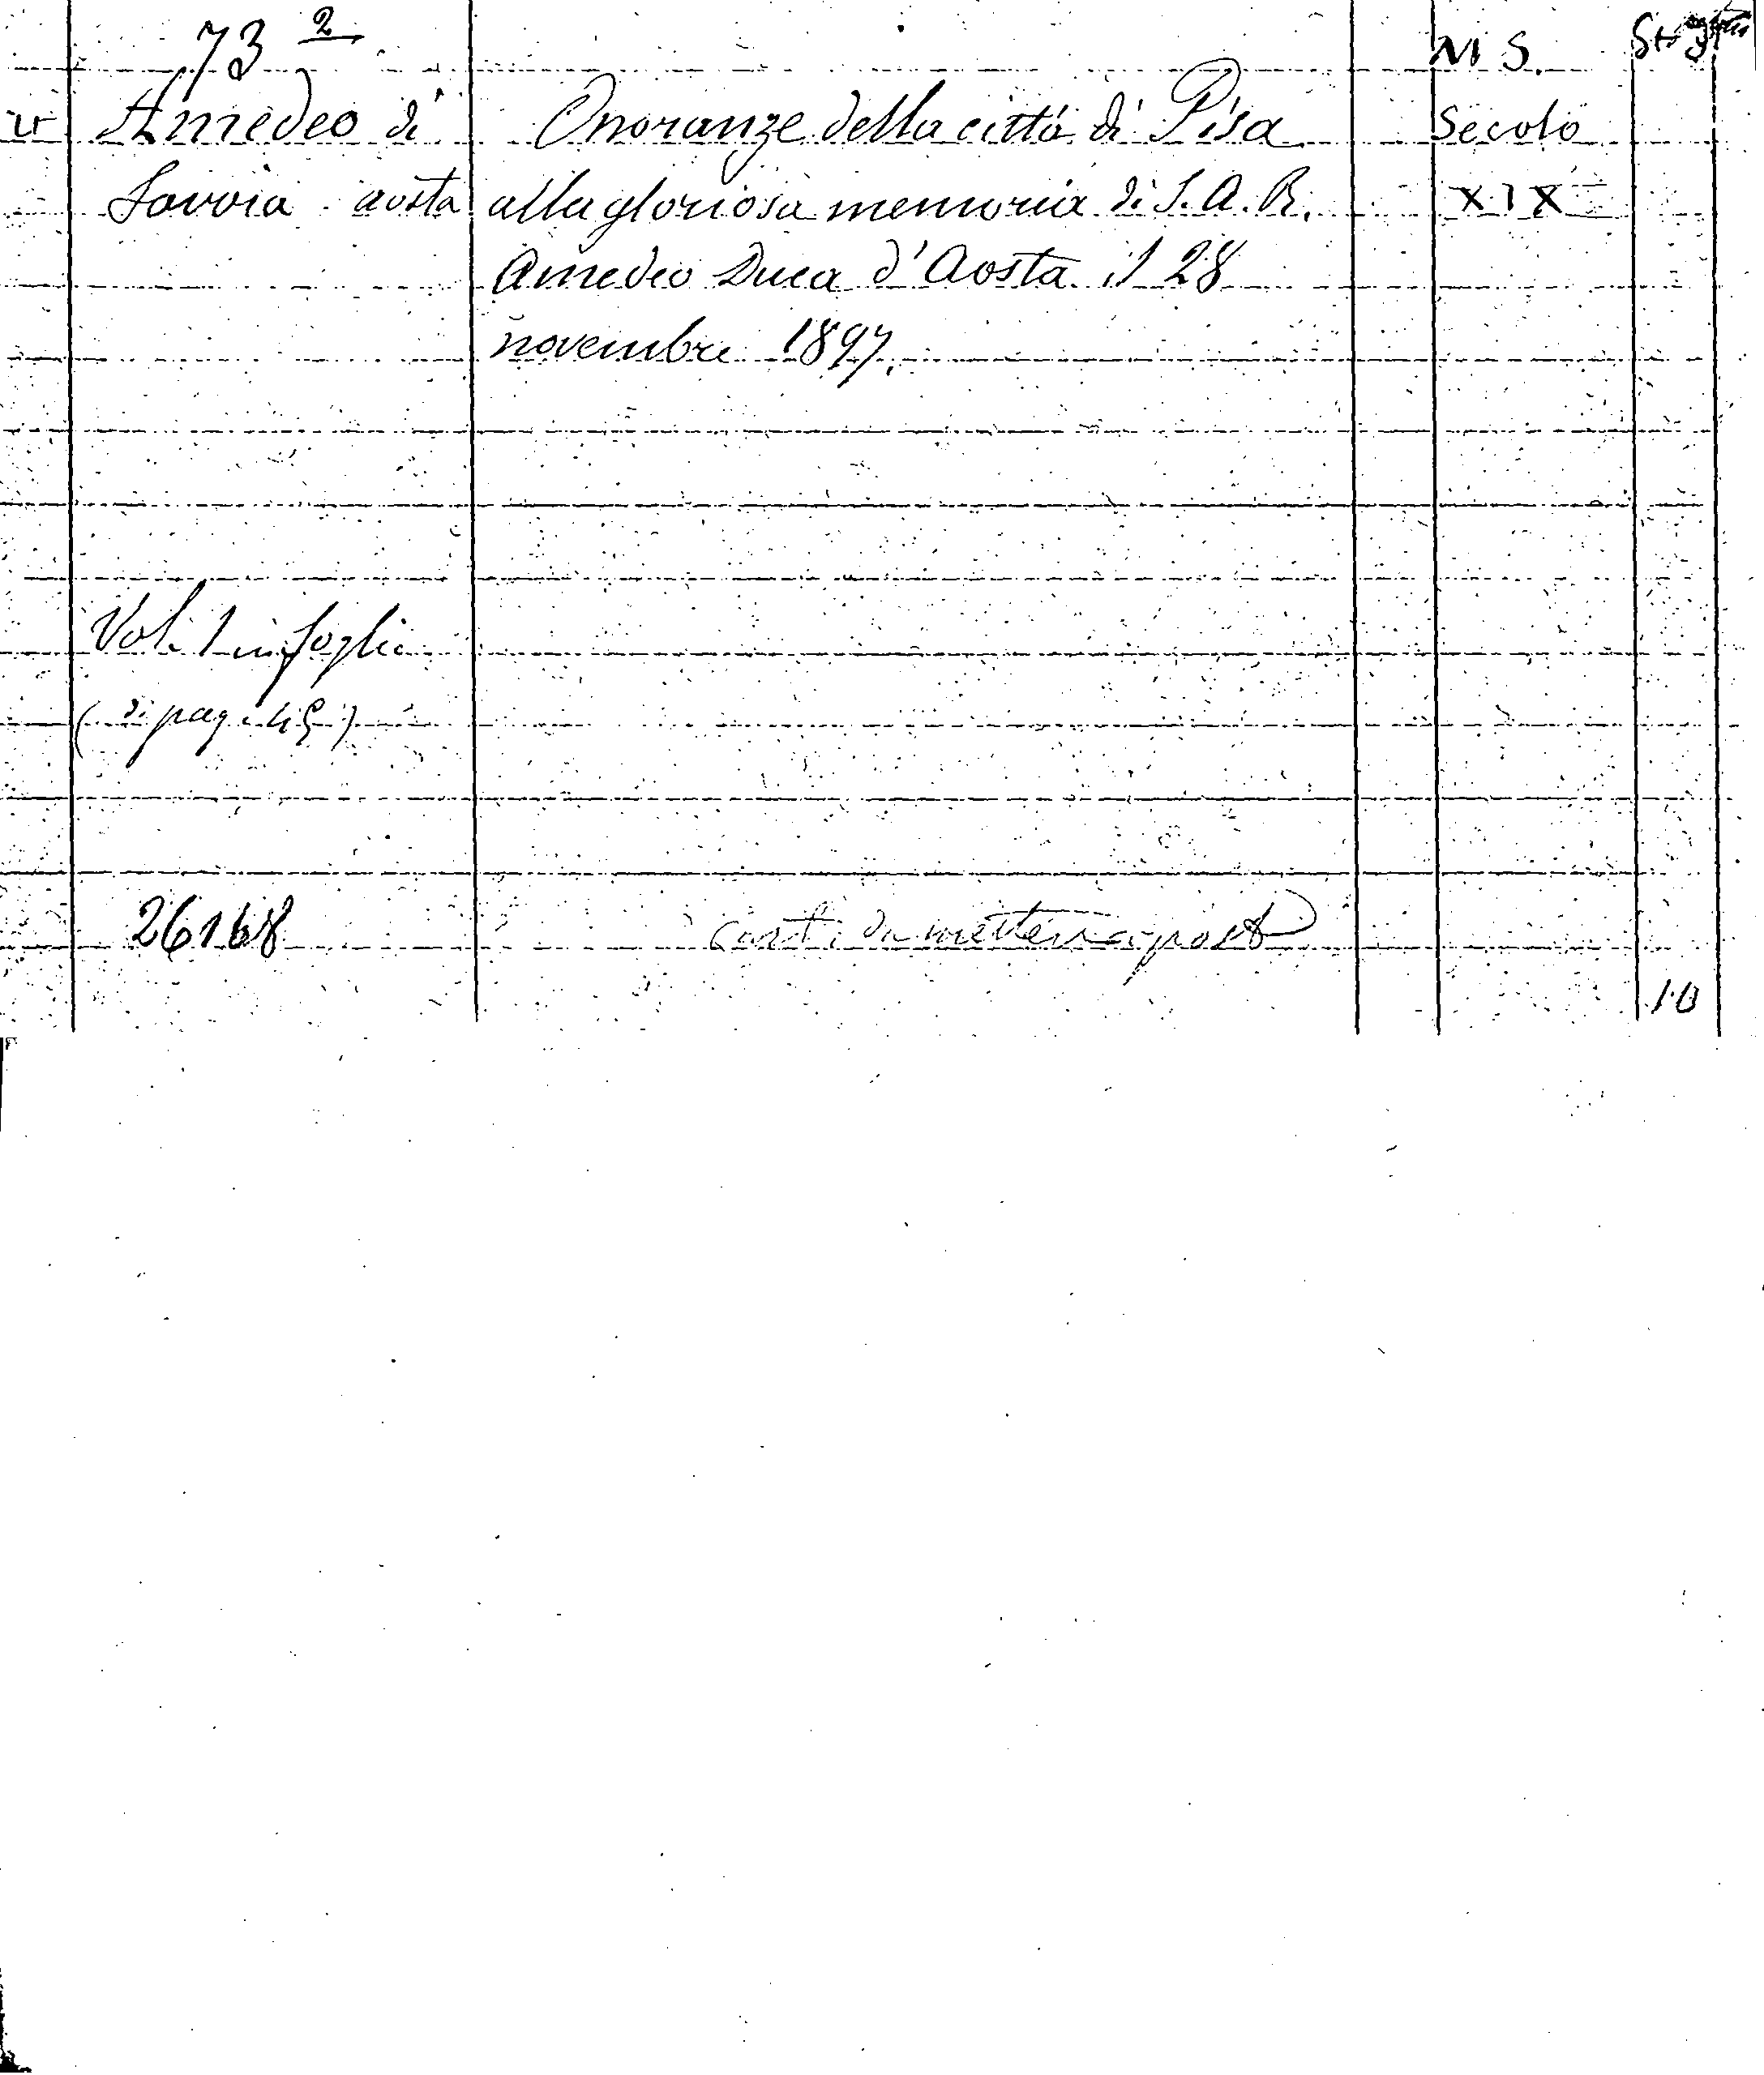 73 2
M S.
Amedeo di
Savoia aosta
Onoranze della città di Pisa
alla gloriosa memoria di S. A. R.
Amedeo Duca d'Aosta il 28
novembre 1897.
Secolo
XIX
Vol. 1 in foglio
(di pag. 45)
26168
cart. da mettersi a posto
10